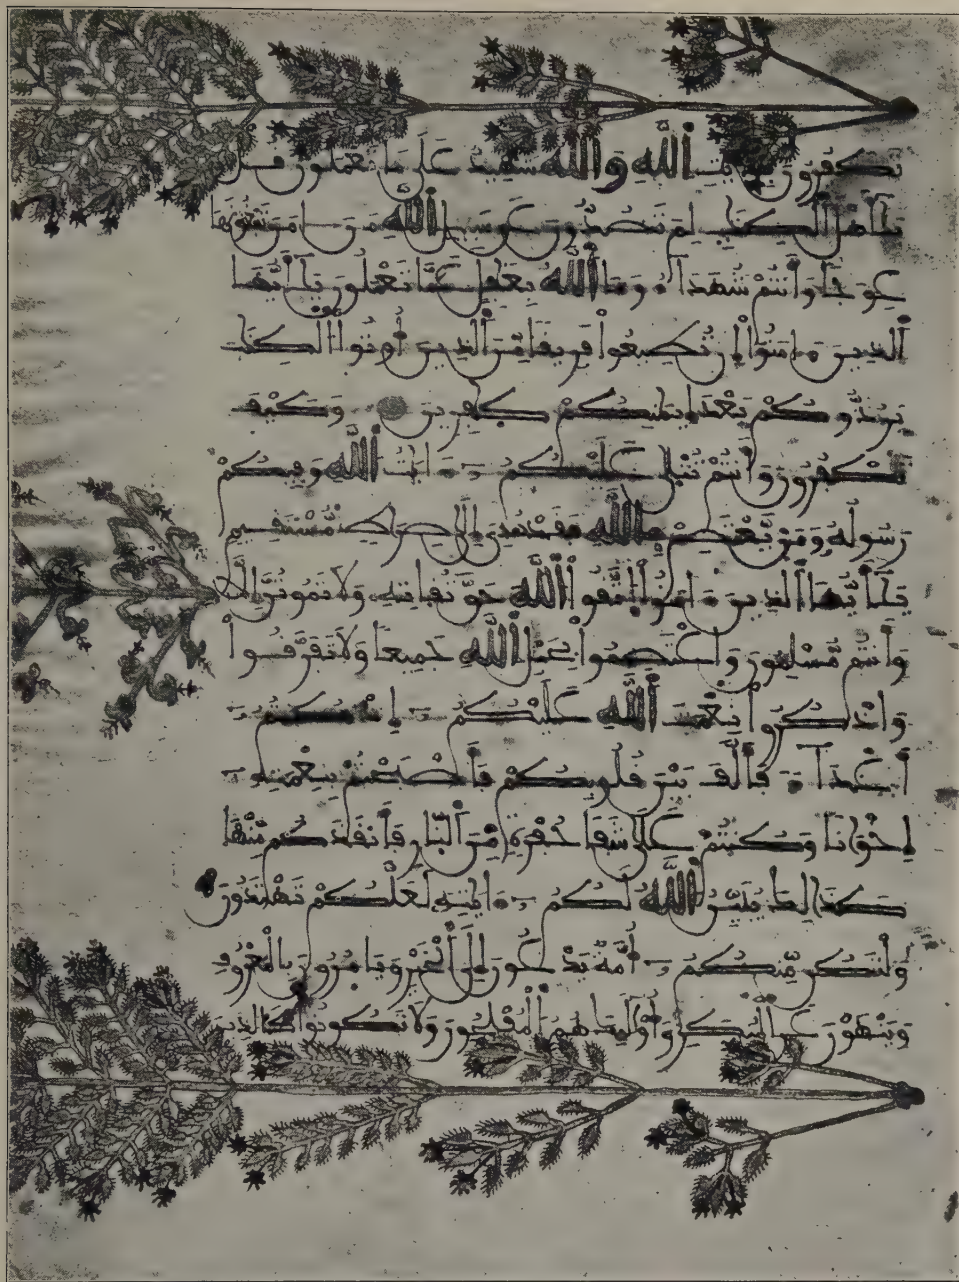 تكفرون بـٔايت ٱلله وٱلله شهيد على ما تعملون قل
يـٰٓأهل ٱلكتـٰب لم تصدون عن سبيل ٱلله من ءامن تبغونها
عوجا وأنتم شهدآء وما ٱلله بغـٰفل عما تعملون يـٰٓأيها
ٱلذين ءامنوا إن تطيعوا فريقا من ٱلذين أوتوا ٱلكتـٰب
يردوكم بعد إيمـٰنكم كـٰفرين وكيف
تكفرون وأنتم تتلى عليكم ءايـٰت ٱلله وفيكم
رسوله ومن يعتصم بٱلله فقد هدي إلى صرٰط مستقيم
يـٰٓأيها ٱلذين ءامنوا ٱتقوا ٱلله حق تقاته ولا تموتن إلا
وأنتم مسلمون وٱعتصموا بحبل ٱلله جميعا ولا تفرقوا
وٱذكروا نعمت ٱلله عليكم إذ كنتم
أعدآء فألف بين قلوبكم فأصبحتم بنعمته
إخوٰنا وكنتم على شفا حفرة من ٱلنار فأنقذكم منها
كذٰلك يبين ٱلله لكم ءايـٰته لعلكم تهتدون
ولتكن منكم أمة يدعون إلى ٱلخير ويامرون بٱلمعروف
وينهون عن ٱلمنكر وأولـٰئك هم ٱلمفلحون ولا تكونوا كٱلذين